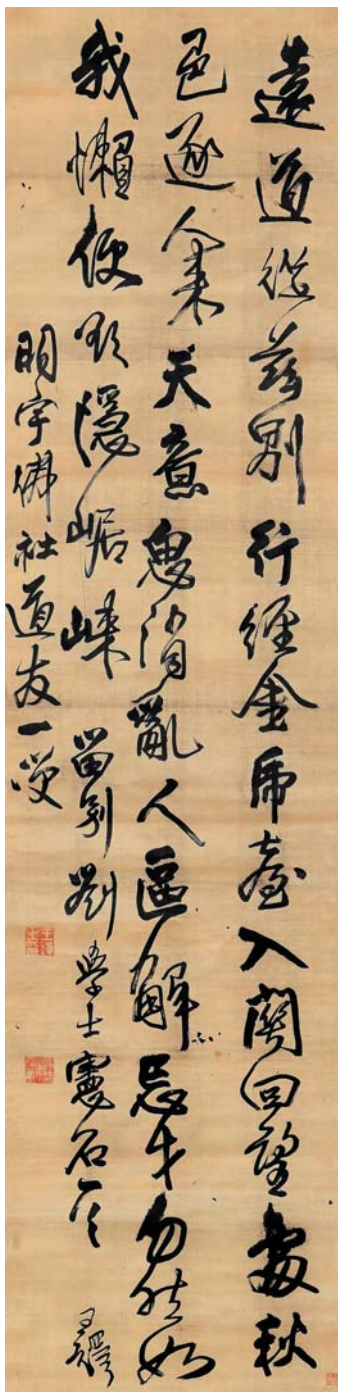 遠道從茲別行經金虎臺入關回望處秋
色逐人來天意思消亂人區解忌才勿然如
我懶便欲隱崌崍留別劉學士憲石王鐸
明宇佛社道友一